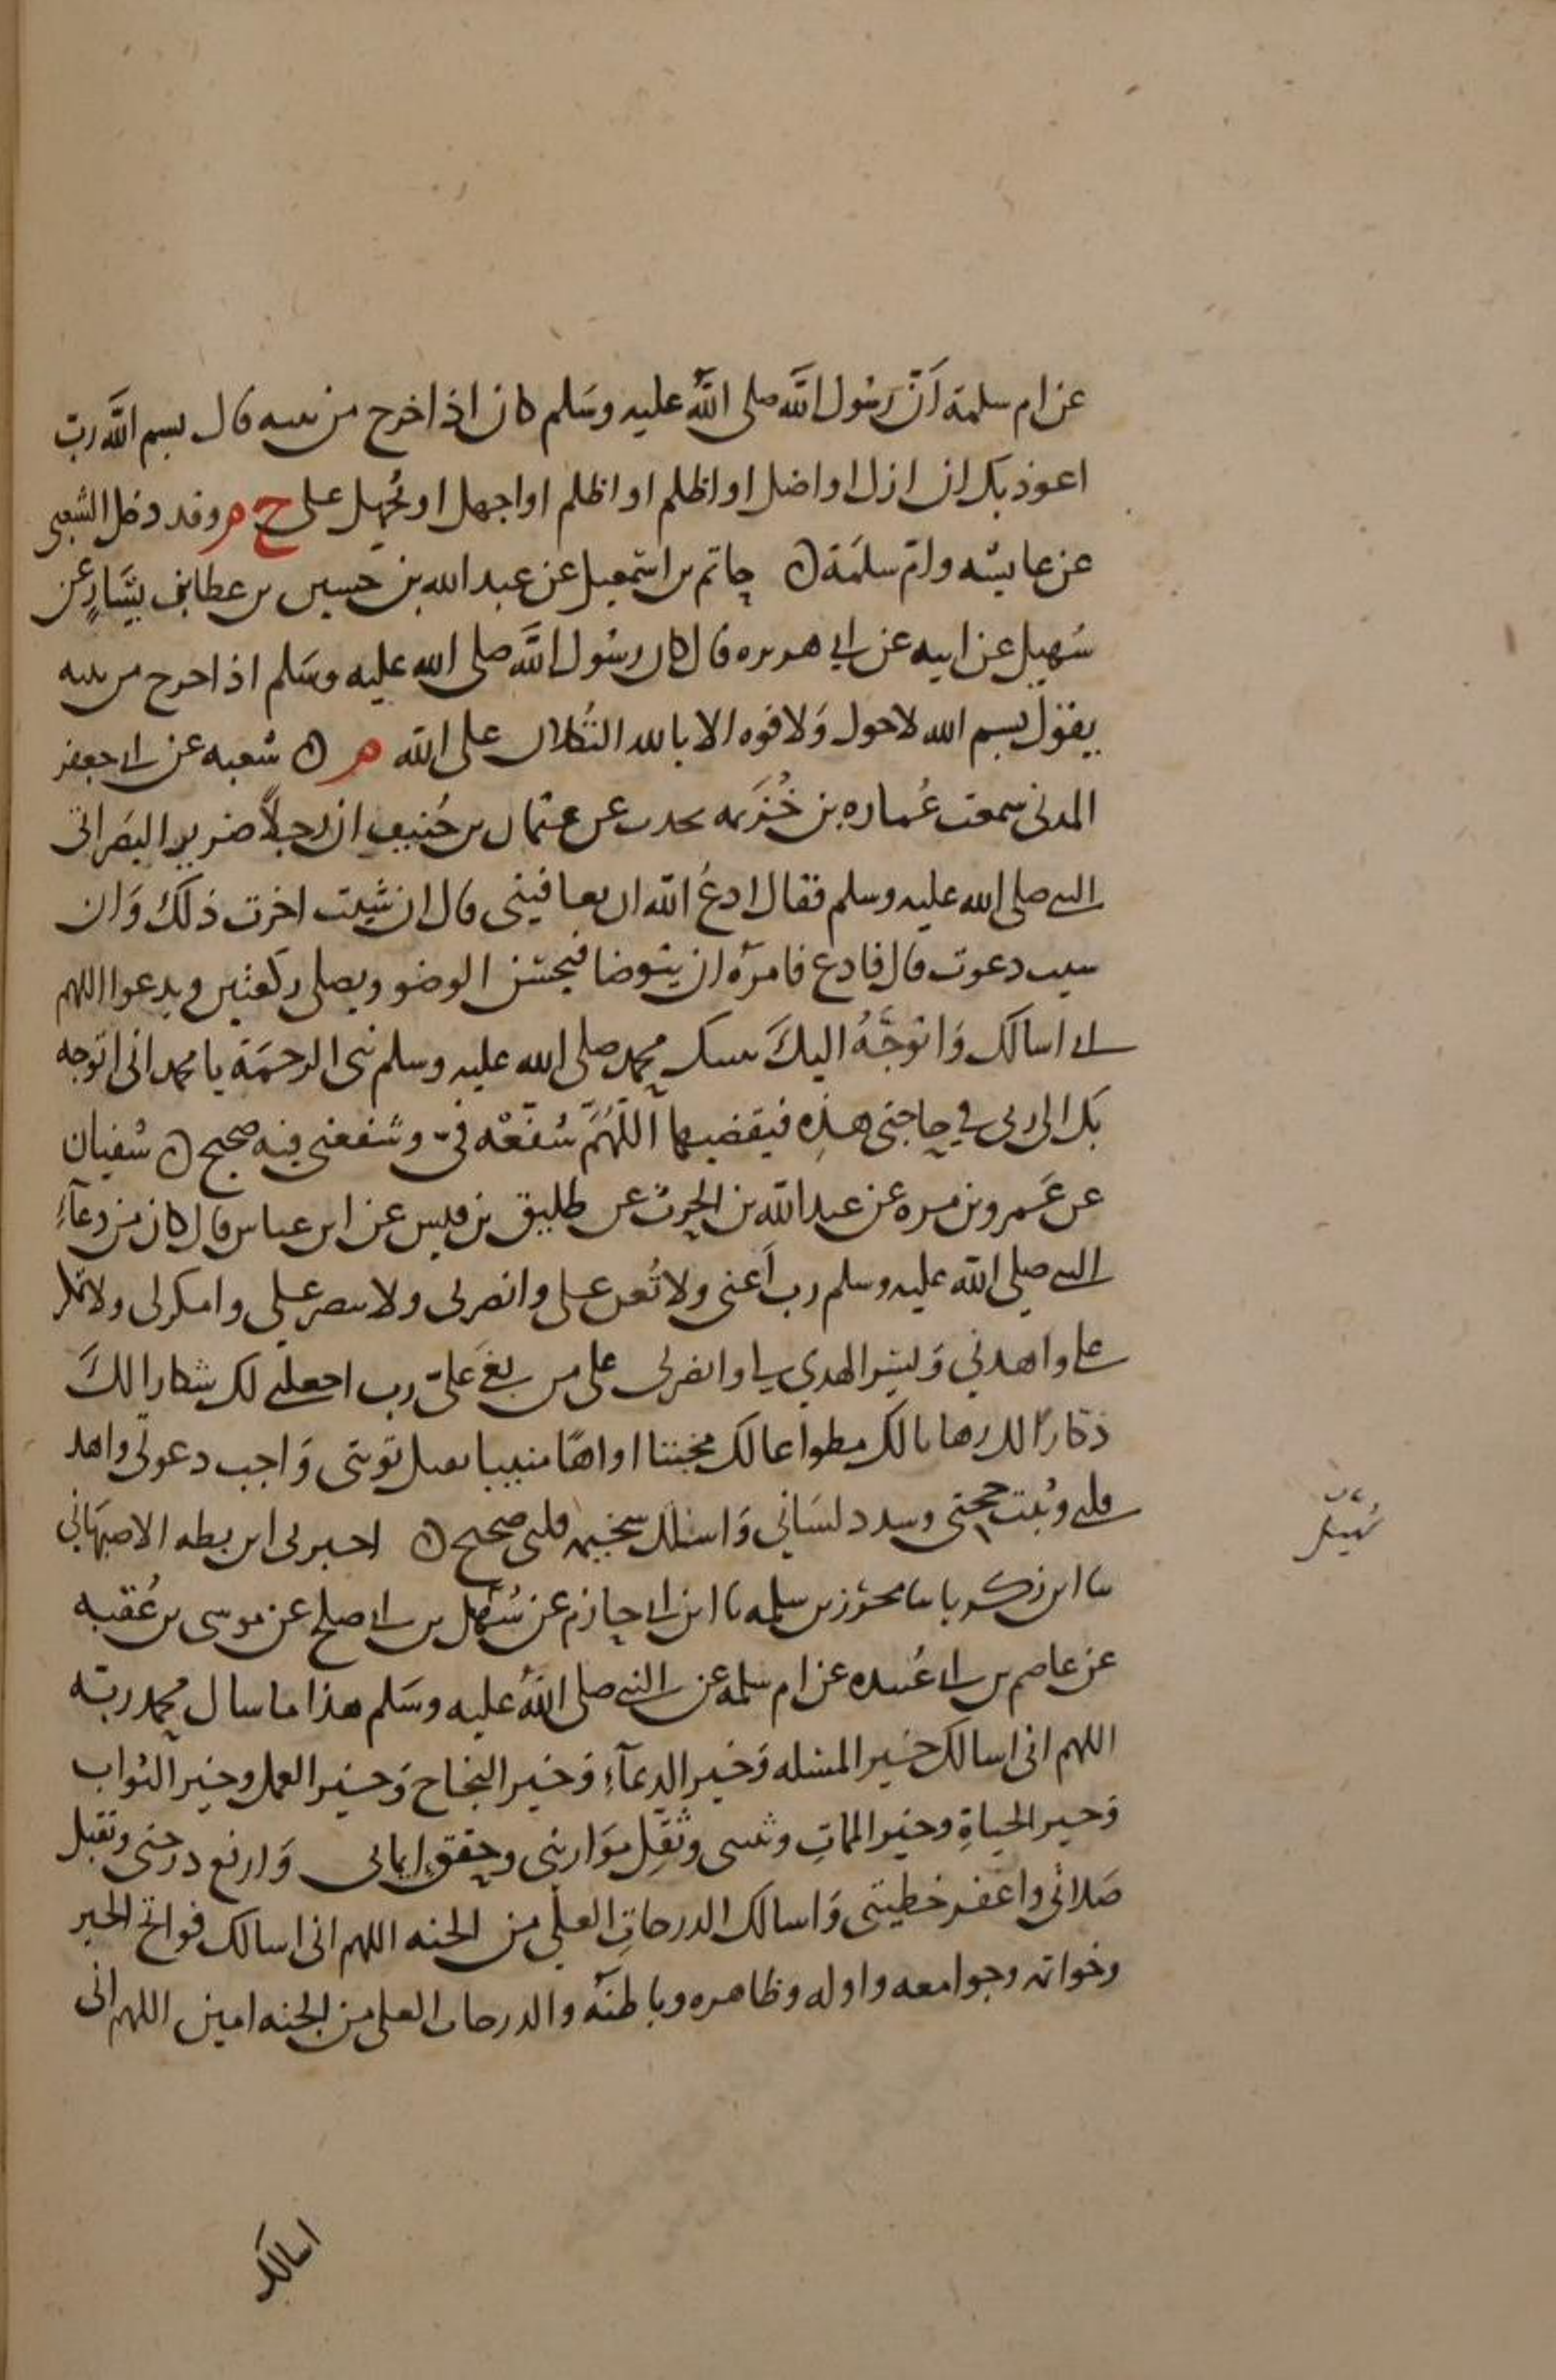 عن ام سلمة اَنّ رسُول اللّه صلى اللّه عليه وسَلم كان اذا خرج من بيته قال بسم اللّه ربّ
اعوذ بك ان ازل او اضل او اظلم او اظلم او اجهل او يُجهل على خ م وقد دخل الشعبى
عن عايشه وامّ سلمَة ه حاتم بن اسمعيل عن عبد الله بن حسين بن عطا بن يسَارٍ عن
سُهيل عن ابيه عن ابي هريره قال كان رسُول اللَّه صلى الله عليه وسَلم اذا خرج من بيته
يقوْل بسم الله لاحول وَلا قوه الا بالله التُكلان على اللّه م ه شعبه عن ابى جعفر
المدنى سمعت عُماره بن خُزَيمه يحدث عن عثمان بن حُنيف ان رجلاً ضرير البصَر اتى
النبى صلى الله عليه وسلم فقال ادعُ اللّه ان يعافينى قال ان شيت اخرت ذلكَ وَان
شيت دعوت قال فادع فامرَه ان يتوضا فيحسن الوضو ويصلى ركعتين ويدعوا اللهم
انى اسالك وَاتوجَّهُ اليكَ بنبيك محمد صلى الله عليه وسلم نبى الرحمَة يا محمد انى اتوجه
بك الى ربى في حاجتى هذِه فيقضيها اَللّهُمَّ شفّعْه فىّ وشفعنى فيه صحيح ه سُفيان
عن عَمرو بن مره عن عبد اللّه بن الحرث عن طليق بن قيس عن ابن عباس قال كان من دعآءِ
النبى صلى اللّه عليه وسلم رب اَعنى ولا تُعن على وانصرلى ولا تنصر على وامكرلى ولا تمكر
على واهدني وَيسر الهدى لى وانصرلى على من بغَى علىّ رب اجعلنى لك شكارا لكَ
ذكّارًا لك رهابا لك مطواعا لك مخبتا اواهًا منيبا تقبل توبتى وَاجب دعوتى واهد
قلبى وثبت حجتى وسدد لسَاني وَاسلل سخيمه قلبى صحيح ه اخبرنى ابن بطه الاصبَهَاني
سا ابن زكريا سا محرز بن سلمه نا ابن ابى حازم عن سُهَيْل بن ابى صلح عن موسى بن عُقبه
سُهَيْل
عن عاصم بن ابى عُبيده عن ام سلمه عن النبى صلى اللهُ عليه وسَلم هذا ما سال محمد ربّه
اللهم انى اسالك خير المسله وَخير الدعآءِ وَخير النجاح وَخير العمل وخير الثواب
وَخير الحياةِ وخير المماتِ وثبتنى وثقِل مَوازينى وحقق ايمانى وَارفع درجتى وتقبل
صَلاتى واغفر خطيتى وَاسالك الدرجاتِ العلى من الجنه اللهم انى اسالك فواتح الخير
وخواتمه وجوامعه واوله وظاهره وباطنَه والدرجات العلى من الجنه امين اللهم انى
اسالك